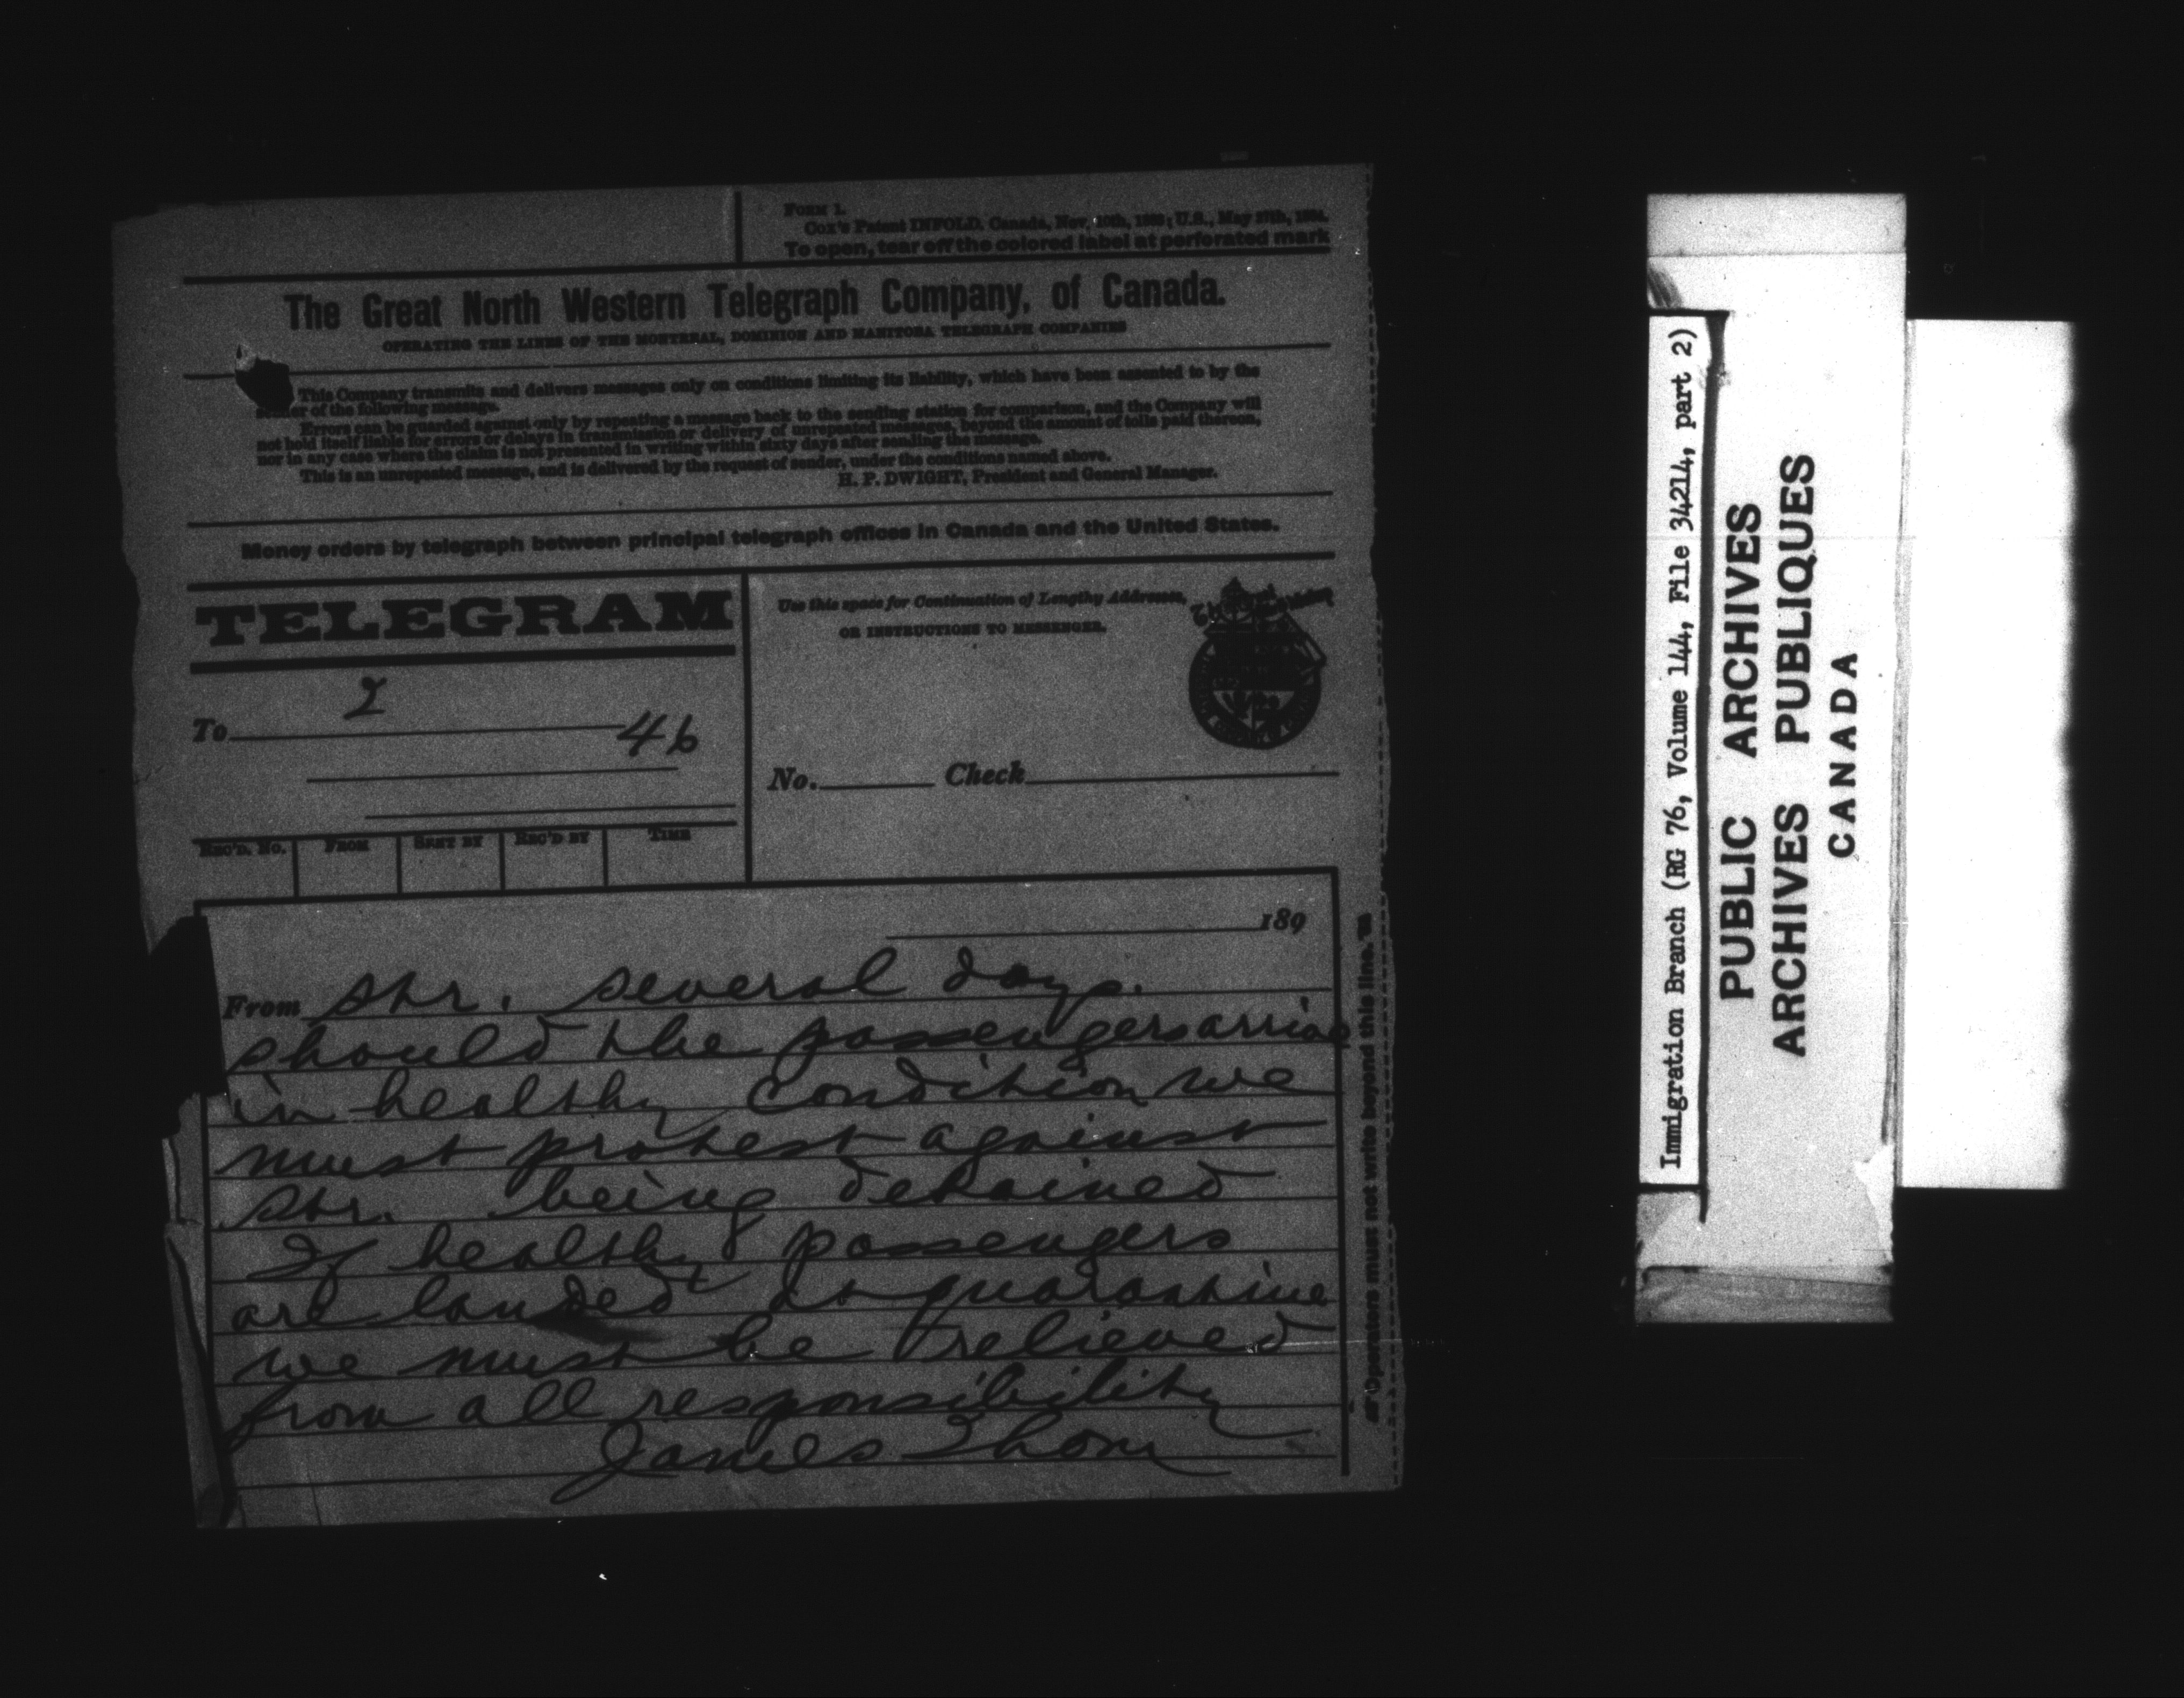 FORM 1.
Cox's Patent INFOLD. Canada, Nov. 10th, U.S., May 27th,
To open, tear off the colored label at perforated mark
The Great North Western Telegraph Company, of Canada.
OPERATING THE LINES OF THE MONTREAL, DOMINION AND MANITOBA TELEGRAPH COMPANIES
This Company transmits and delivers messages only on conditions limiting its liability, which have been assented to by the
sender of the following message.
Errors can be guarded against only by repeating a message back to the sending station for comparison, and the Company will
not hold itself liable for errors or delays in transmission or delivery of unrepeated messages, beyond the amount of tolls paid thereon,
nor in any case where the claim is not presented in writing within sixty days after sending the message.
This is an unrepeated message, and is delivered by the request of sender, under the conditions named above.
H. P. DWIGHT, President and General Manager.
Money orders by telegraph between principal telegraph offices in Canada and the United States.
TELEGRAM
Use this space for Continuation of Lengthy Addresses,
OR INSTRUCTIONS TO MESSENGER.
To 2
46
No. Check
REC'D. NO. FROM SENT BY REC'D BY TIME
189
From Str. several days.
should the passengers arrive
in healthy condition we
must protest against
Str. being detained
If healthy passengers
are landed at quarantine
we must be relieved
from all responsibility
James Thom
Operators must not write beyond this line.
Immigration Branch (RG 76, Volume 144, File 34214, part 2)
PUBLIC ARCHIVES
ARCHIVES PUBLIQUES
CANADA